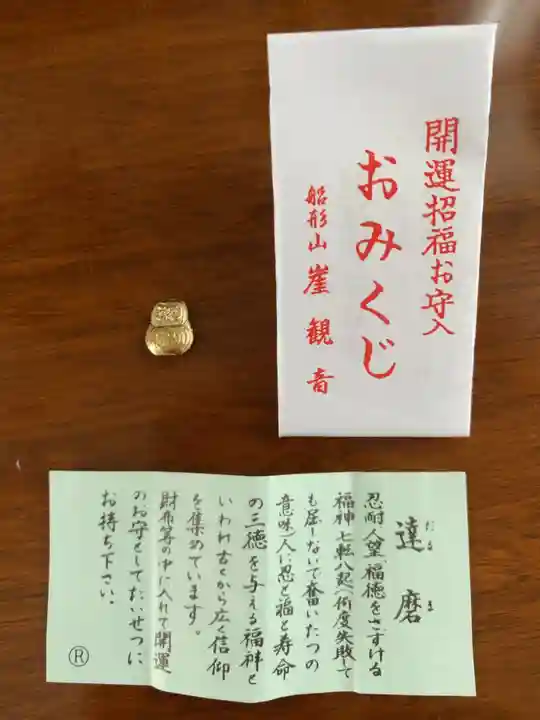 開運招福お守入
おみくじ
船形山 崖観音
だるま
達磨
忍耐 人望 福徳をさずける
福神 七転八起(何度失敗して
も屈しないで奮いたつの
意味)人に忍と福と寿命
の三徳を与える福神と
いわれ古くから広く信仰
を集めています。
財布等の中に入れて開運
のお守としてたいせつに
お持ち下さい。
Ⓡ